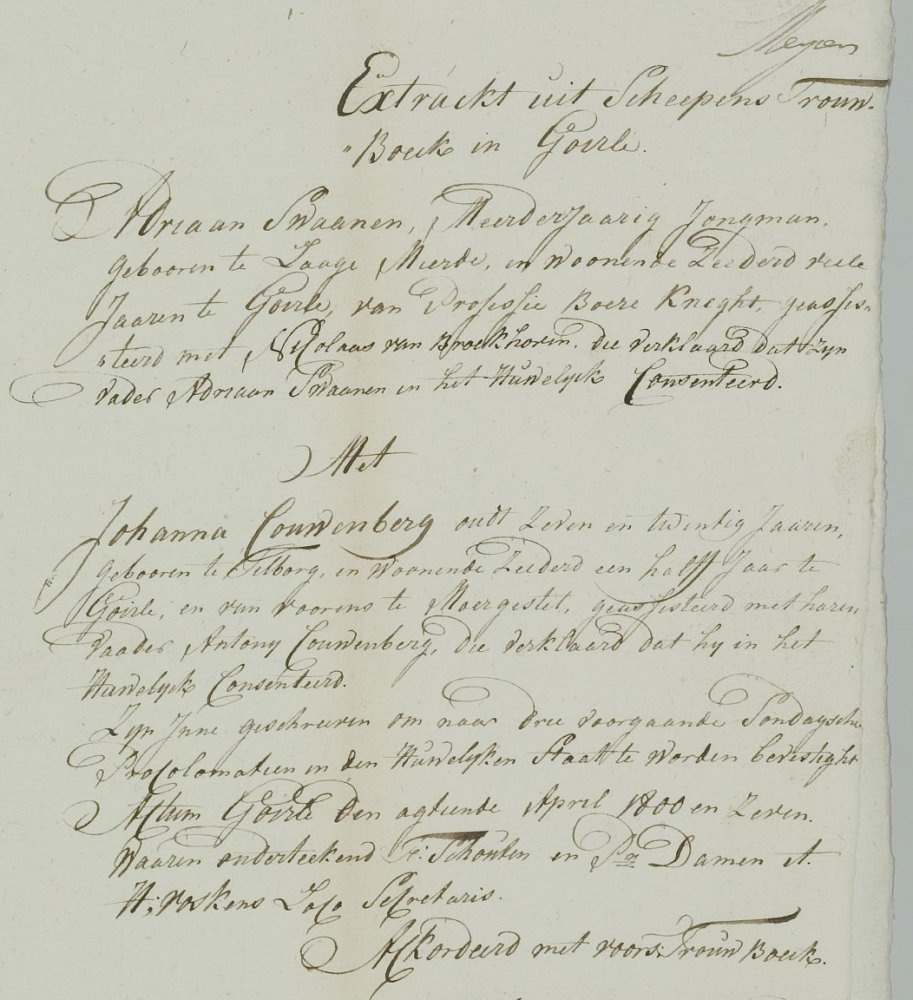 Extrackt uit Scheepens Trouw-
"Boeck in Goirle.
Adriaan Swaanen, Meerderjaarig Jongman,
gebooren te Laage Mierde, en woonende Zeederd veele
Jaaren te Goirle, van Professie Boere Kneght, geassis-
"teerd met Nicolaas van Broekhoven, die verklaard dat zyn
vader Adriaan Swaanen in het Huwelyck Consenteerd.
Met
Johanna Couwenberg oudt Zeven en twintig Jaaren,
gebooren te Tilborg, en woonende Zeederd een halff Jaar te
Goirle, en van voorens te Moergestel, geassisteerd met haren
vaader Antony Couwenberg, die verklaard dat hy in het
Huwelyck Consenteerd.
Zyn Inne geschreeven om naar drie voorgaande Sondagsche
Procolomatien in den Huwelyken Staat te worden bevestight
Actum Goirle den agtiende April 1800 en Zeven.
Waaren onderteekend Schouten en Damen et.
H: voskens Loco Secretaris.
Ackordeerd met voors: Trouw Boeck.